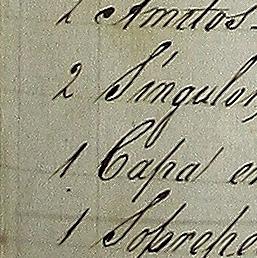 1 Amitos
2 Síngulos
1 Capa en
1 Sobrepe